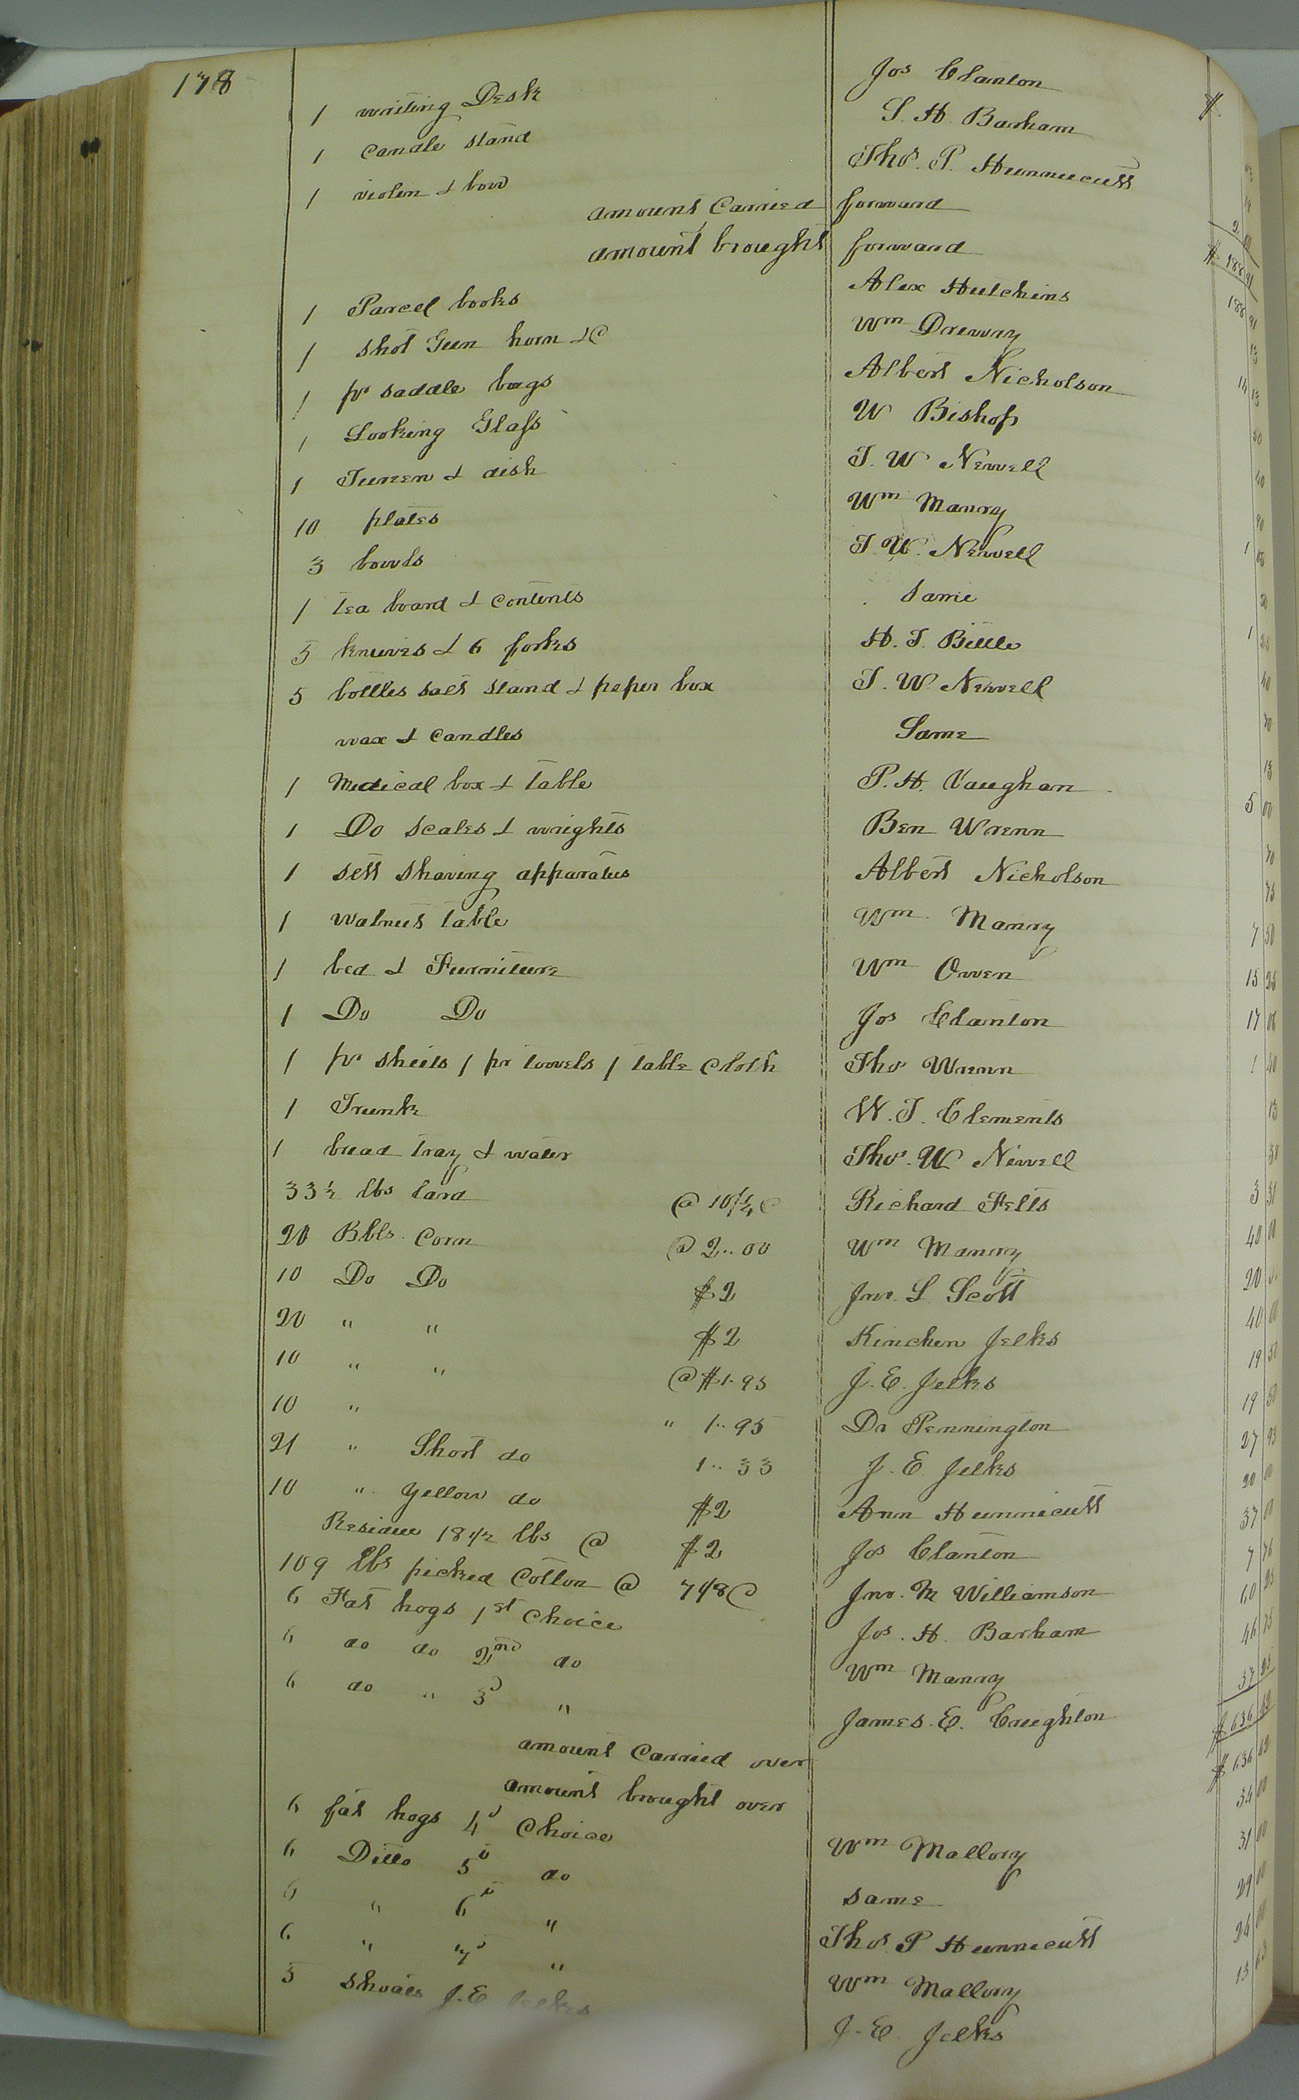 178
1 writing Desk Jos Clanton $
1 Candle stand S. H. Barham
1 violin & bow Thos. P. Hunnucutt
amount Carried forward $ 188
amount brought forward 188
1 Parcel books Alex Hutchins
1 Shot Gun horn &C Wm Drewry
1 pr saddle bags Albert Nicholson
1 Looking Glass W Bishop
1 Tureen & dish T. W Newell
10 plates Wm Manry
3 bowls T. W. Newell
1 tea board & Contents Same
5 knives & 6 forks H. T. Bittle
5 bottles salt stand & peper box T. W. Newell
wax & Candles Same
1 Medical box & table P. H. Vaughan 5 00
1 Do Scales & wrights Ben Wrenn
1 sett shaving apparatus Albert Nicholson 75
1 Walnut table Wm Manry 7 50
1 bed & Furniture Wm Owen 15 25
1 Do Do Jos Clanton 17 06
1 pr sheets 1 pr towels 1 table Cloth Thos Wrenn
1 Trunk W. T. Clements
1 bread tray & water Thos. W Newell
33 ½ lbs lard @ 10¼ C Richard Felts 3
20 Bbls Corn @ 2..00 Wm Manry 40 00
10 Do Do $2 Jno. L Scott 20
20 " " $2 Kinchen Jelks 40 00
10 " " @ $1.95 J. E. Jelks 19 50
10 " " 1..95 Dr Pennington 19 50
21 " Short do 1..33 J. E. Jelks 27 93
10 " Yellow do $2 Ann Hunnicutt 20 00
Residue 18 ½ lbs @ $2 Jos Clanton 37 00
109 lbs picked Cotton @ 7 1/8 C Jno. M Williamson 7 76
6 Fat hogs 1st Choice Jos. H. Barham 60
6 do do 2nd do Wm Manry 46
6 do " 3d " James. E. Caughton 37
amount Carried over $ 636
amount brought over $ 636
6 fat hogs 4d Choice Wm Mallory
6 Ditto 5d do Same 31 00
6 " 6d " Thos P Hunnicutt 29 00
6 " 7d " Wm Mallory 24 00
3 Shoats J. E Jelks J. E Jelks 13